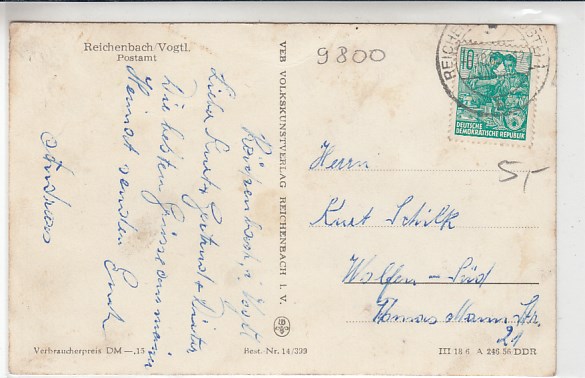 Reichenbach/Vogtl.
Postamt
9800
Reichenbach, i. Vogtl
Lieber Kurt, Gertrud + Dieter
Die besten Grüsse aus meiner
Heimat senden Euch
VEB VOLKSKUNSTVERLAG REICHENBACH I. V.
REICHENBACH
10
DEUTSCHE
DEMOKRATISCHE REPUBLIK
5,-
Herrn
Kurt Schilk
Wolfen - Süd
Thomas Mann Str.
21
Verbraucherpreis DM —,15
Best.-Nr. 14/399
III 18 6 A 246 56 DDR